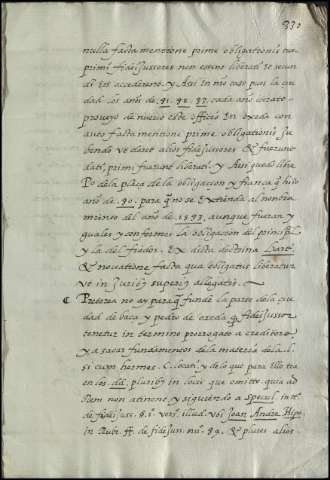 330
nulla facta mentione prime obligationis tunc
primi fideiussores non essent liberati se secun
di non accederent. y Assi en nro caso pues la ciu
dad los años de 91. 92. 93. cada año de
proveyo de nuevo este officio En oxeda con
nulla facta mentione prime obligationis su
bendo ve dando alios fideiussores & fuerunt
dati, primi fuerunt liberati. y Assi quedo libre
P.o dela plaça de la obligacion y fiança q hizo
año de .90. para q no se extienda al nombra
miento del año de 1593, aunque fueran y
guales y conformes la obligacion del principal
y la del fiador. Ex dicta doctrina Bart.
& novatione facta qua obligatus liberatur
ut in Juribus superius allegatis.
Preterea no ay para q funde la parte dela ciu
dad de baeça y pedro de oxeda q fideiussor
tenetur in termino prorrogato a creditore
y a sacar fundamentos de la materia de la l.
si cum hermes. C. locati, y de lo que para ello trae
en los dd. pluribus in locis que omitto quia ad
rem non attinent, y siguiendo a Specul. in tt.
de fideiuss. §. 1. vers. illud. ubi Joan. Andre. Hipo.
in Rubr. ff. de fideiuss. nu. 89. & plures alios.